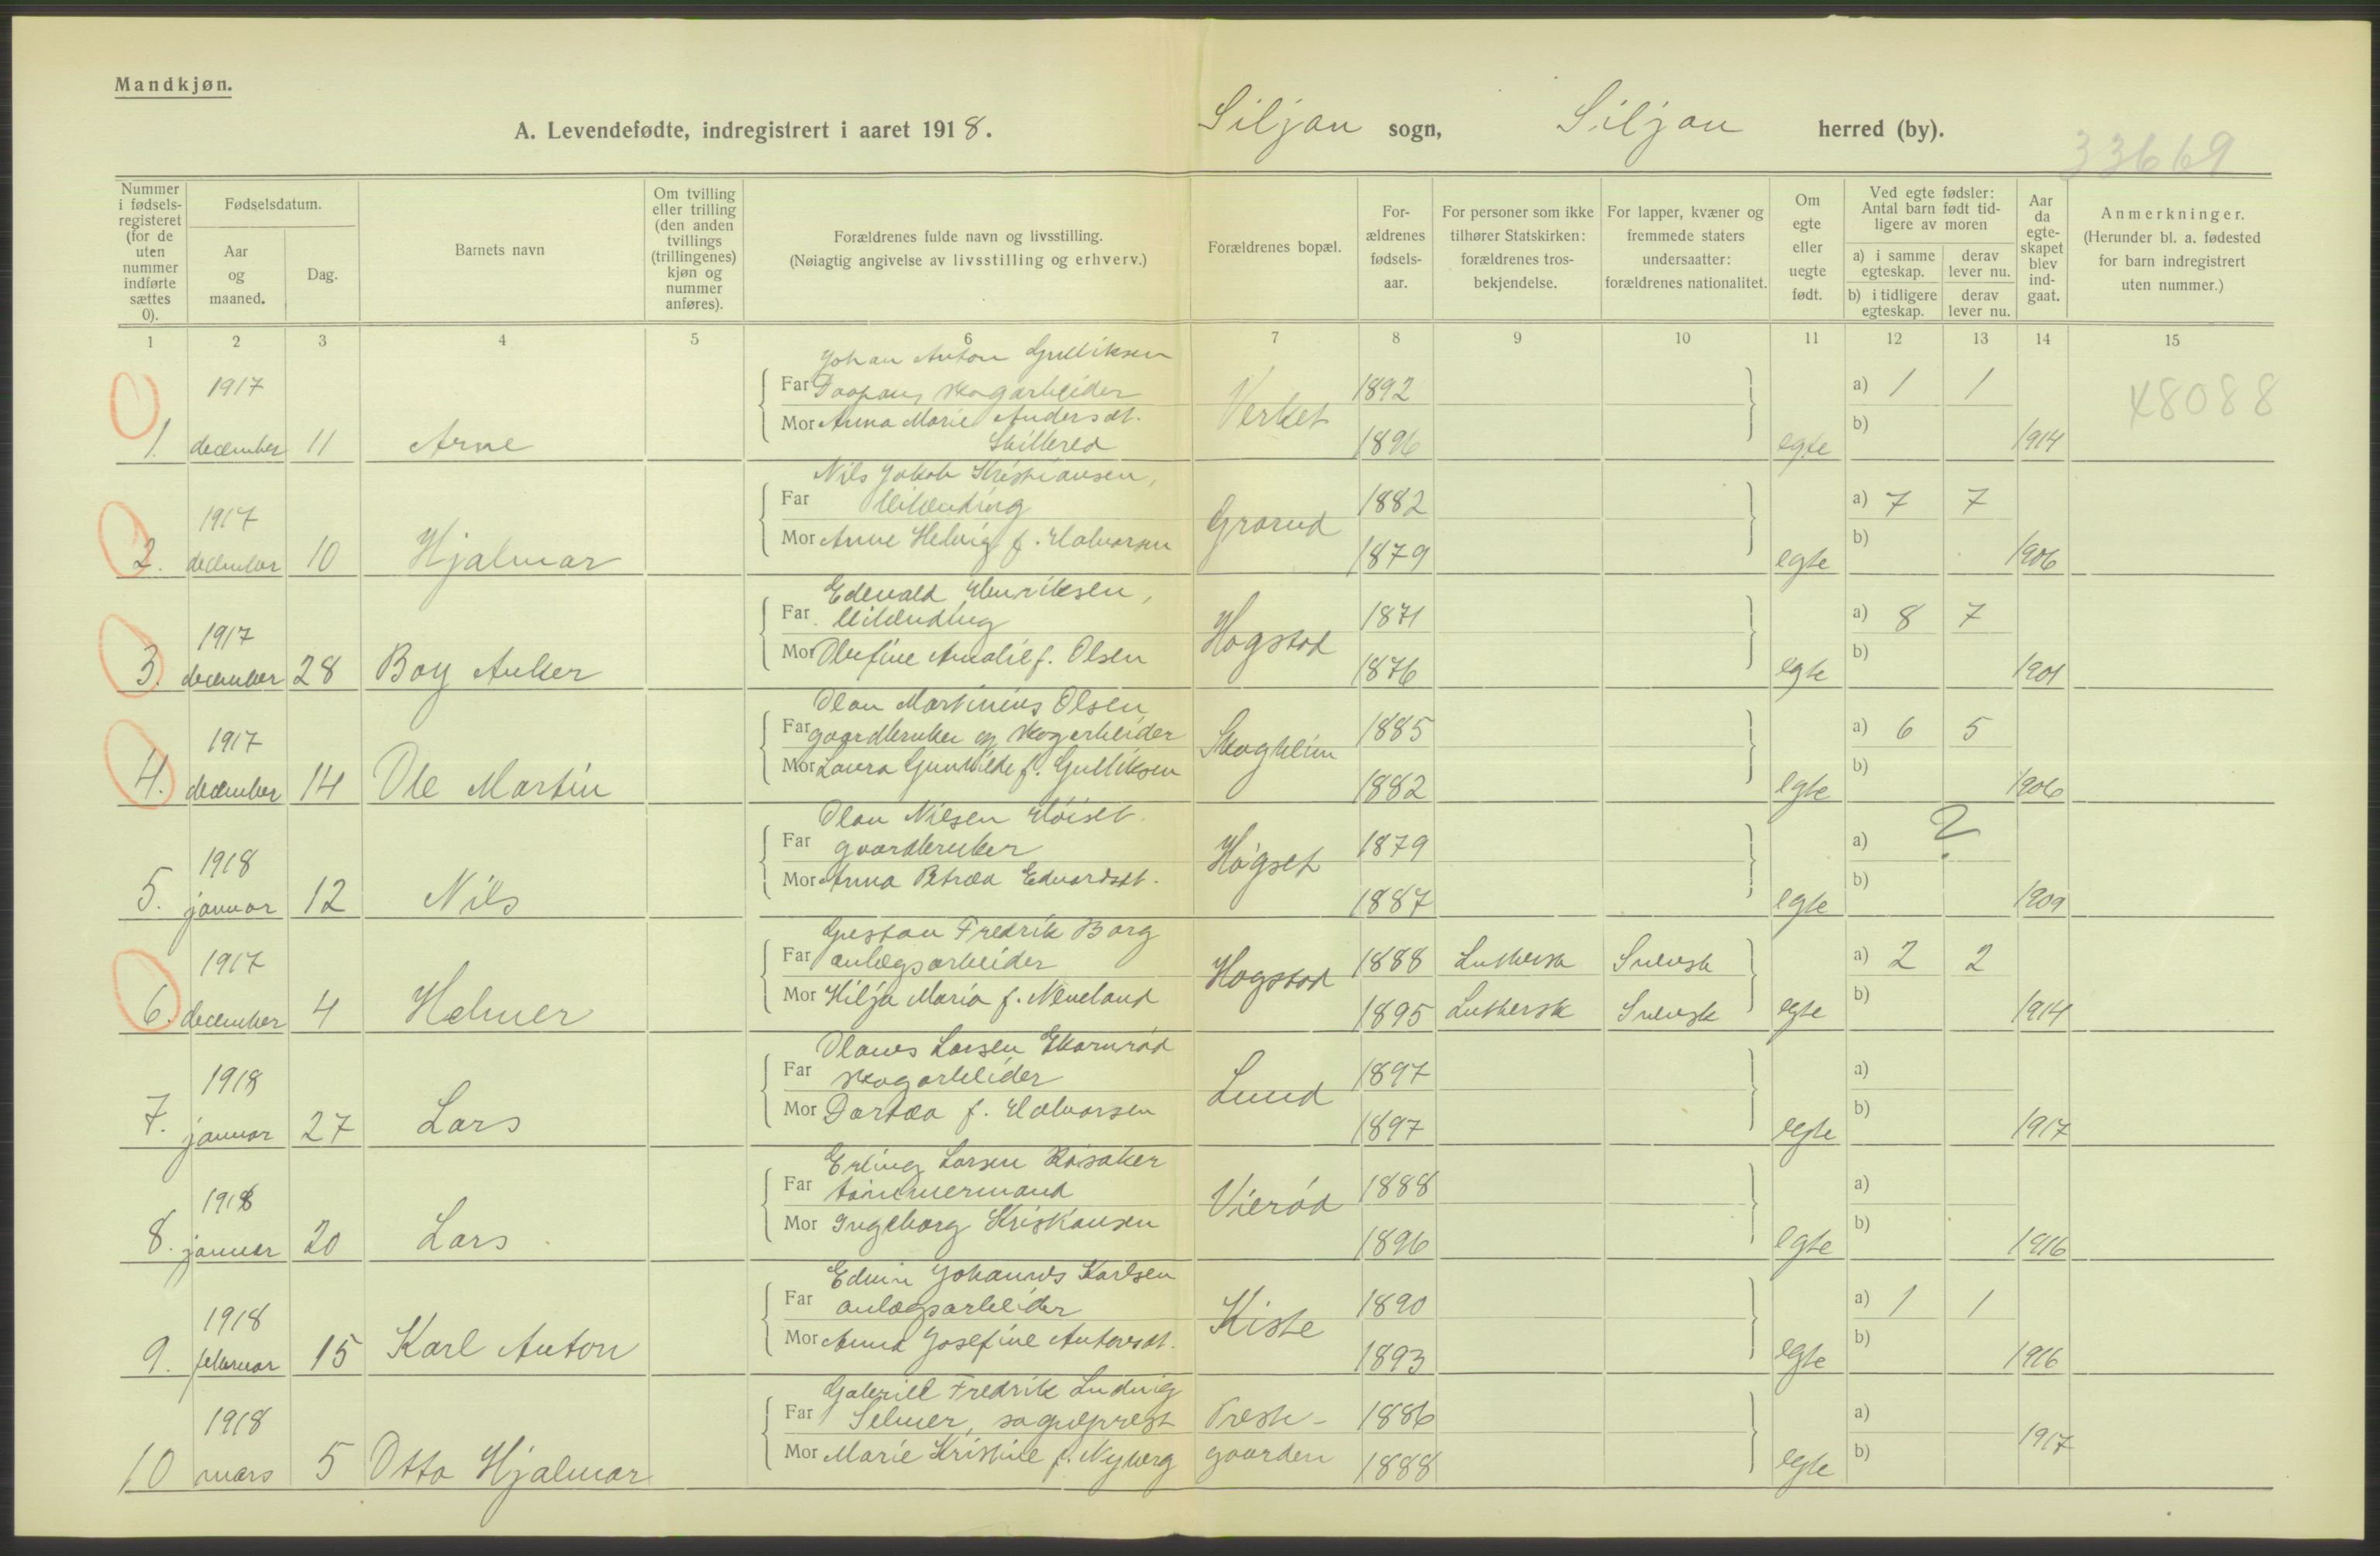 Mandkjøn.
A. Levendefødte, indregistrert i aaret 1918. Siljan sogn, Siljan herred (by).
33669
Nummer i fødsels-registeret (for de uten nummer indførte sættes 0).
Fødselsdatum.
Aar og maaned.
Dag.
Barnets navn
Om tvilling eller trilling (den anden tvillings (trillingenes) kjøn og nummer anføres).
Forældrenes fulde navn og livsstilling.
(Nøiagtig angivelse av livsstilling og erhverv.)
Forældrenes bopæl.
For-ældrenes fødsels-aar.
For personer som ikke tilhører Statskirken: forældrenes tros-bekjendelse.
For lapper, kvæner og fremmede staters undersaatter: forældrenes nationalitet.
Om egte eller uegte født.
Ved egte fødsler: Antal barn født tid-ligere av moren
a) i samme egteskap.
derav lever nu.
b) i tidligere egteskap.
derav lever nu.
Aar da egte-skapet blev ind-gaat.
Anmerkninger.
(Herunder bl. a. fødested for barn indregistrert uten nummer.)
1 2 3 4 5 6 7 8 9 10 11 12 13 14 15
Johan Anton Gulliksen
1917 Far skogarbeider 1892 a) 1 1
48088
Mor Anna Marie Andersdt. Verket b)
1. december 11 Arne 1896 egte 1914
Nils Jakob Kristiansen,
1917 Far leilending 1882 a) 7 7
Mor Anne Helvig f. Halvorsen Grorud b)
2. december 10 Hjalmar 1879 egte 1906
Edevald Henriksen,
1917 Far leilending 1871 a) 8 7
Mor Olefine Amalie f. Olsen Hogstad b)
3. december 28 Boy Anker 1876 egte 1901
Olav Martinius Olsen
1917 Far gaardbruker og skogarbeider 1885 a) 6 5
Mor Laura Gunhilde f. Gulliksen Skogheim b)
4. december 14 Ole Martin 1882 egte 1906
Olav Nilsen Høiset
1918 Far gaardbruker 1879 a) ?
Mor Anna Petrea Edvardsdt. Høgset b)
5. januar 12 Nils 1887 egte 1909
Gustav Fredrik Borg
1917 Far anlægsarbeider 1888 Luthersk Svensk a) 2 2
Mor Hilja Maria f. Neveland Hogstad b)
6. december 4 Helmer 1895 Luthersk Svensk egte 1914
Olaves Larsen Ekornrød
1918 Far skogarbeider 1897 a)
Mor Dortea f. Halvorsen Lund b)
7. januar 27 Lars 1897 egte 1917
Erling Larsen Råsaker
1918 Far tømmermand 1888 a)
Mor Ingeborg Kristiansen Vierød b)
8. januar 20 Lars 1896 egte 1916
Edvin Johannes Karlsen
1918 Far anlægsarbeider 1890 a) 1 1
Mor Anna Josefine Antonsdt. Kiste b)
9. februar 15 Karl Anton 1893 egte 1916
Gabriel Fredrik Ludvig
1918 Far Selmer, sogneprest Preste- 1886 a)
Mor Marie Kristine f. Nyberg gaarden b) 1917
10 mars 5 Otto Hjalmar 1888 egte